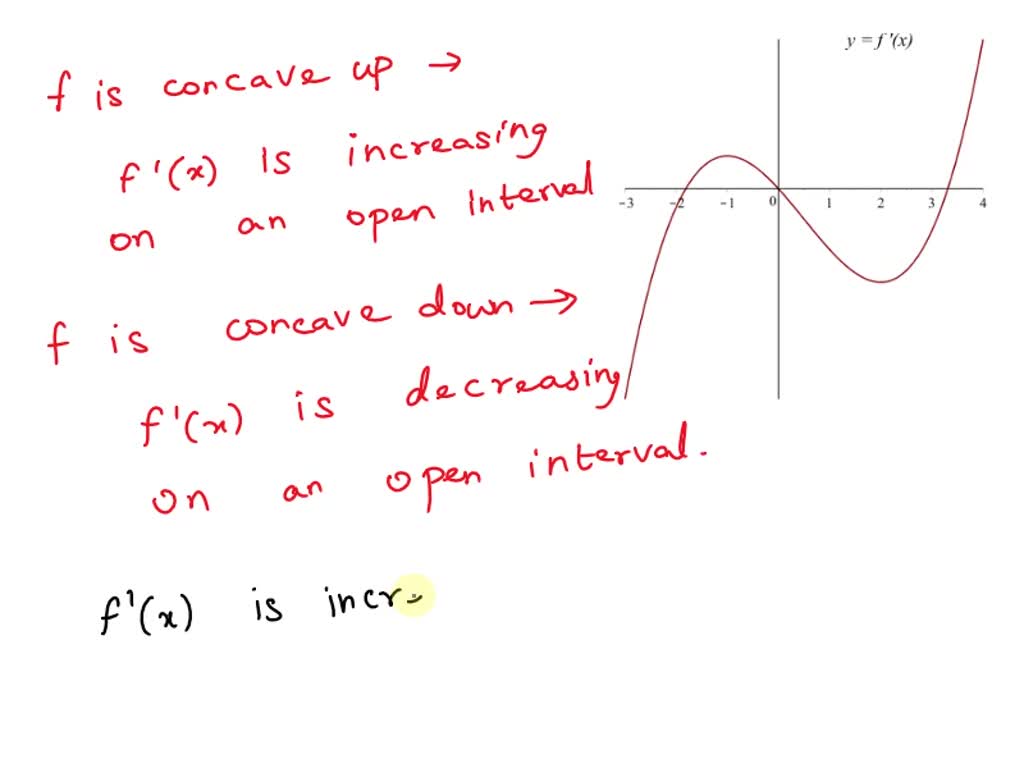 f is concave up →
f'(x) is increasing
on an open interval
f is concave down →
f'(x) is decreasing
on an open interval.
f'(x) is incr
y = f'(x)
-3 -2 -1 0 1 2 3 4